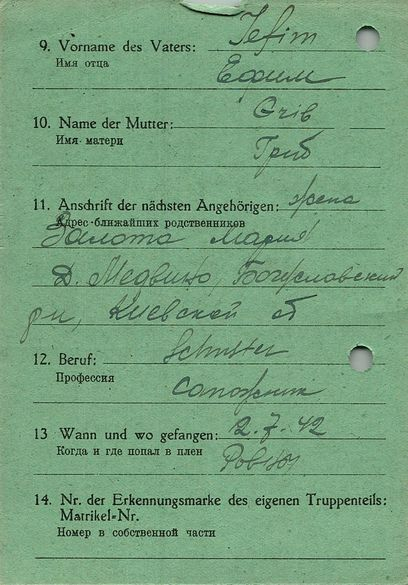 9. Vorname des Vaters: Jefim
Имя отца
Ефим
Grib
10. Name der Mutter:
Имя матери
Гриб
11. Anschrift der nächsten Angehörigen: жена
Адрес ближайших родственников
Золота Мария
д. Медвино, Богуславский
р-н, Киевской об
Schuster
12. Beruf:
Профессия
сапожник
13 Wann und wo gefangen: 2.7.42
Когда и где попал в плен
14. Nr. der Erkennungsmarke des eigenen Truppenteils:
Matrikel-Nr.
Номер в собственной части